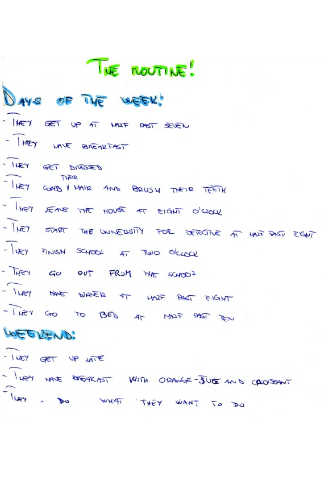 THE ROUTINE!
DAYS OF THE WEEK:
- THEY GET UP AT HALF PAST SEVEN
- THEY HAVE BREAKFAST
- THEY GET DRESSED
- THEY COMB THEIR HAIR AND BRUSH THEIR TEETH
- THEY LEAVE THE HOUSE AT EIGHT O'CLOCK
- THEY START THE UNIVERSITY FOR DETECTIVE AT HALF PAST EIGHT
- THEY FINISH SCHOOL AT TWO O'CLOCK
- THEY GO OUT FROM THE SCHOOL
- THEY HAVE AT HALF PAST EIGHT
- THEY GO TO BED AT HALF PAST TEN
WEEKEND:
- THEY GET UP LATE
- THEY HAVE BREAKFAST WITH ORANGE-JUICE AND CROISSANT
- THEY DO WHAT THEY WANT TO DO